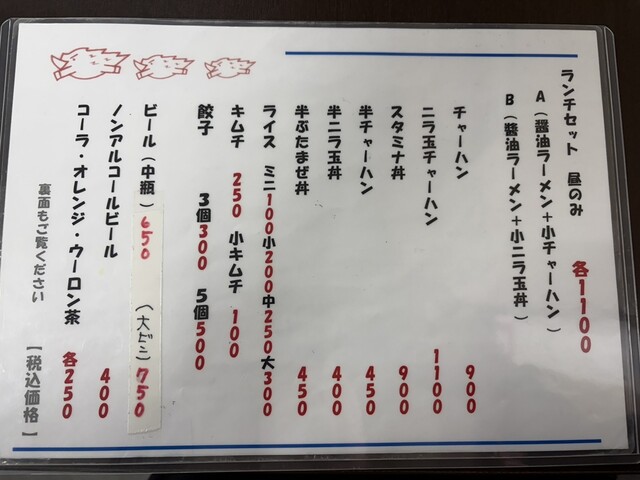 ランチセット 昼のみ 各1100
A(醤油ラーメン+小チャーハン)
B(醬油ラーメン+小ニラ玉丼)
チャーハン 900
ニラ玉チャーハン 1100
スタミナ丼 900
半チャーハン 450
半ニラ玉丼 400
半ぶたまぜ丼 450
ライス ミニ100小200中250大300
キムチ 250 小キムチ 100
餃子 3個300 5個500
ビール(中瓶)650 (大ビン)750
ノンアルコールビール 400
コーラ・オレンジ・ウーロン茶 各250
裏面もご覧ください 【税込価格】